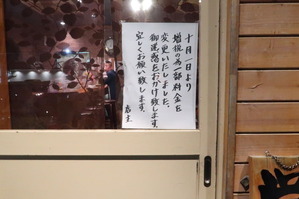 十月一日より
増税の為一部料金を
変更いたしました。
御迷惑をおかけ致します。
宜しくお願い致します。
店主